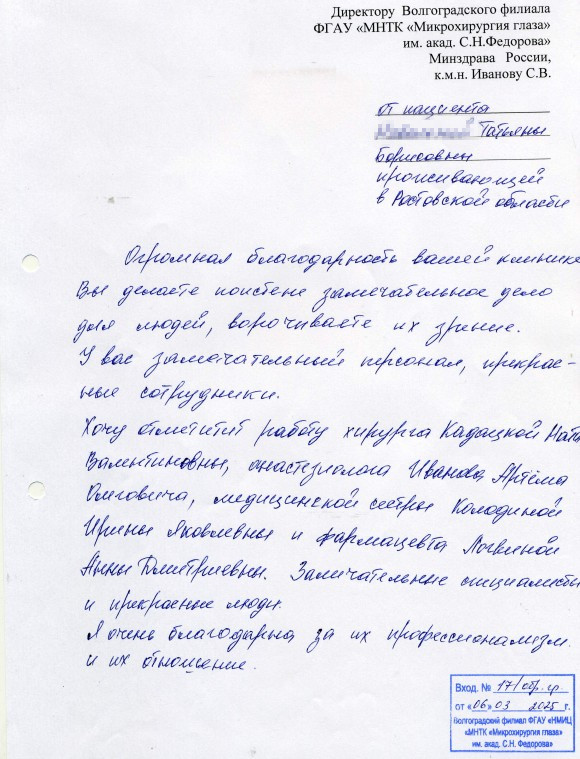 Директору Волгоградского филиала
ФГАУ «МНТК «Микрохирургия глаза»
им. акад. С.Н.Федорова»
Минздрава России,
к.м.н. Иванову С.В.
от пациента
Татьяны
Борисовны
проживающей
в Ростовской области
Огромная благодарность вашей клинике
Вы делаете поистене замечательное дело
для людей, ворочиваете их зрение.
У вас замечательный персонал, прекрас-
ные сотрудники.
Хочу отметит работу хирурга Кадацкой Ната
Валентиновны, анастезиолога Иванова Артёма
Олеговича, медицинской сестры Колодиной
Ирины Яковлевны и фармацевта Логвиной
Анны Дмитриевны. Замечательные специалисты
и прекрасные люди.
Я очень благодарна за их профессионализм.
и их отношение.
Вход. № 17/обр.гр.
от «06» 03 2025 г.
Волгоградский филиал ФГАУ «НМИЦ
«МНТК «Микрохирургия глаза»
им. акад. С.Н. Федорова»